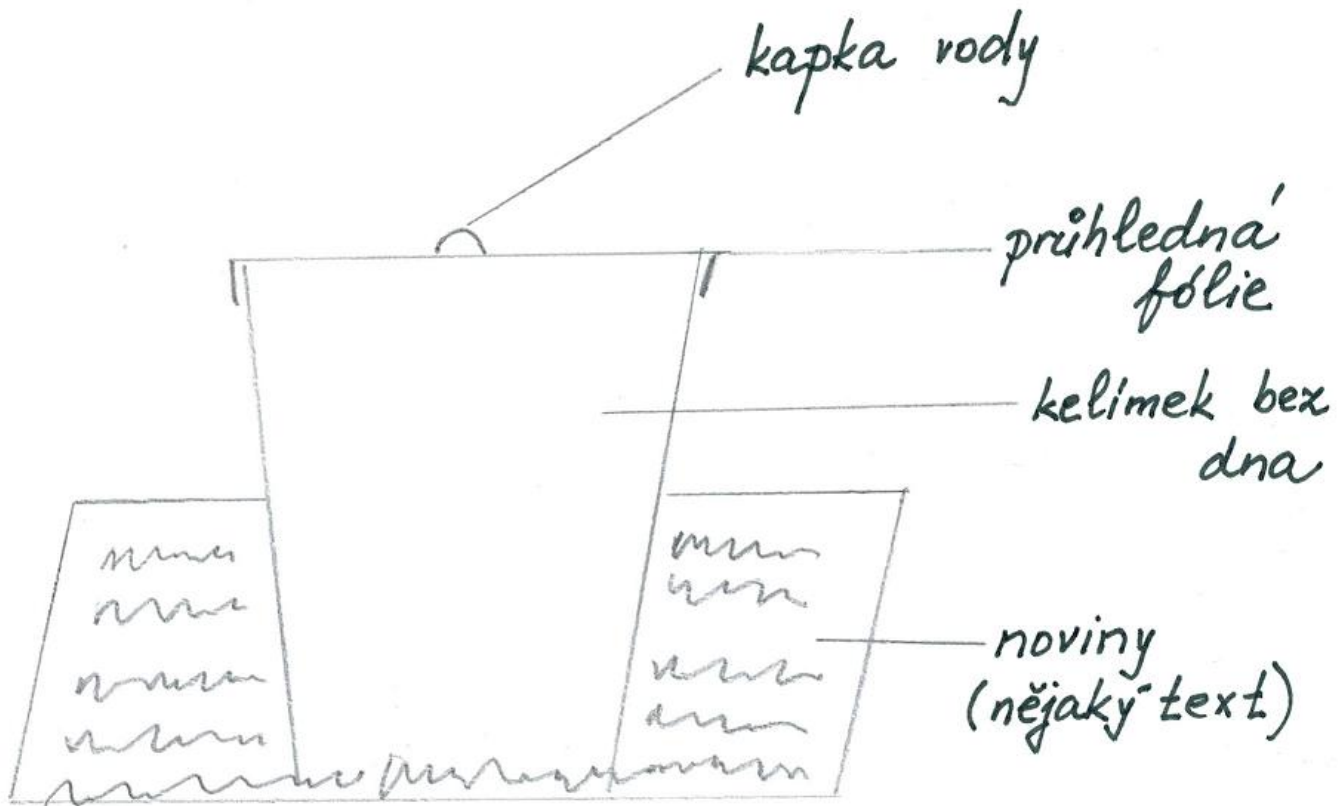 kapka vody
průhledná
fólie
kelímek bez
dna
noviny
(nějaký text)